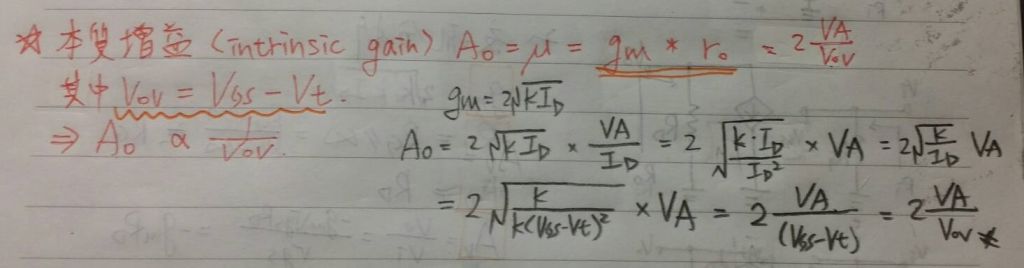 ☆ 本質增益 (intrinsic gain) A₀ = μ = gm * r₀ = 2 VA/Vov
其中 Vov = VGS - Vt.
gm = 2√(k ID)
⇒ A₀ ∝ 1/Vov.
A₀ = 2√(k ID) × VA/ID = 2 √(k·ID/ID²) × VA = 2√(k/ID) VA
= 2√(k/k(VGS-Vt)²) × VA = 2 VA/(VGS-Vt) = 2 VA/Vov ※